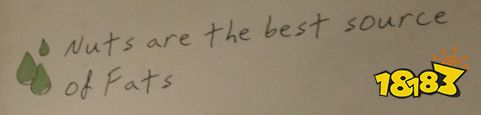 Nuts are the best source
of Fats
18183